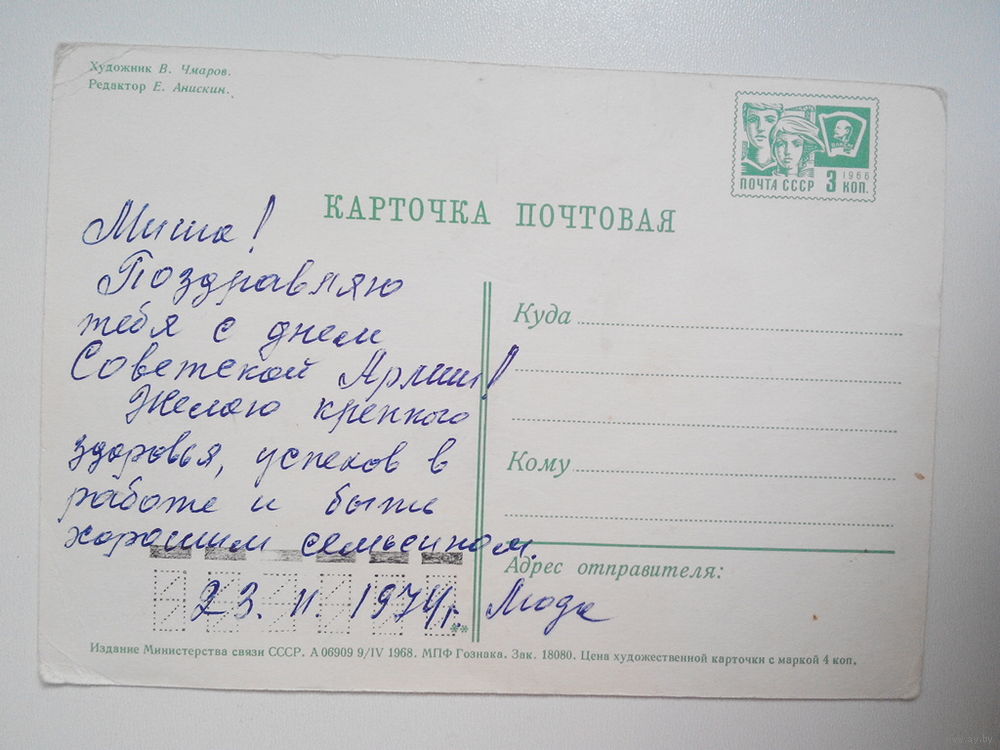 Художник В. Чмаров.
Редактор Е. Анискин.
ВЛКСМ
1966
ПОЧТА СССР 3 КОП.
КАРТОЧКА ПОЧТОВАЯ
Миша!
Поздравляю
тебя с днем
Советской Армии!
Желаю крепкого
здоровья, успехов в
работе и быть
хорошим семьсином.
23. II. 1974г. Люда
Куда
Кому
Адрес отправителя:
Издание Министерства связи СССР. А 06909 9/IV 1968. МПФ Гознака. Зак. 18080. Цена художественной карточки с маркой 4 коп.
www.ay.by